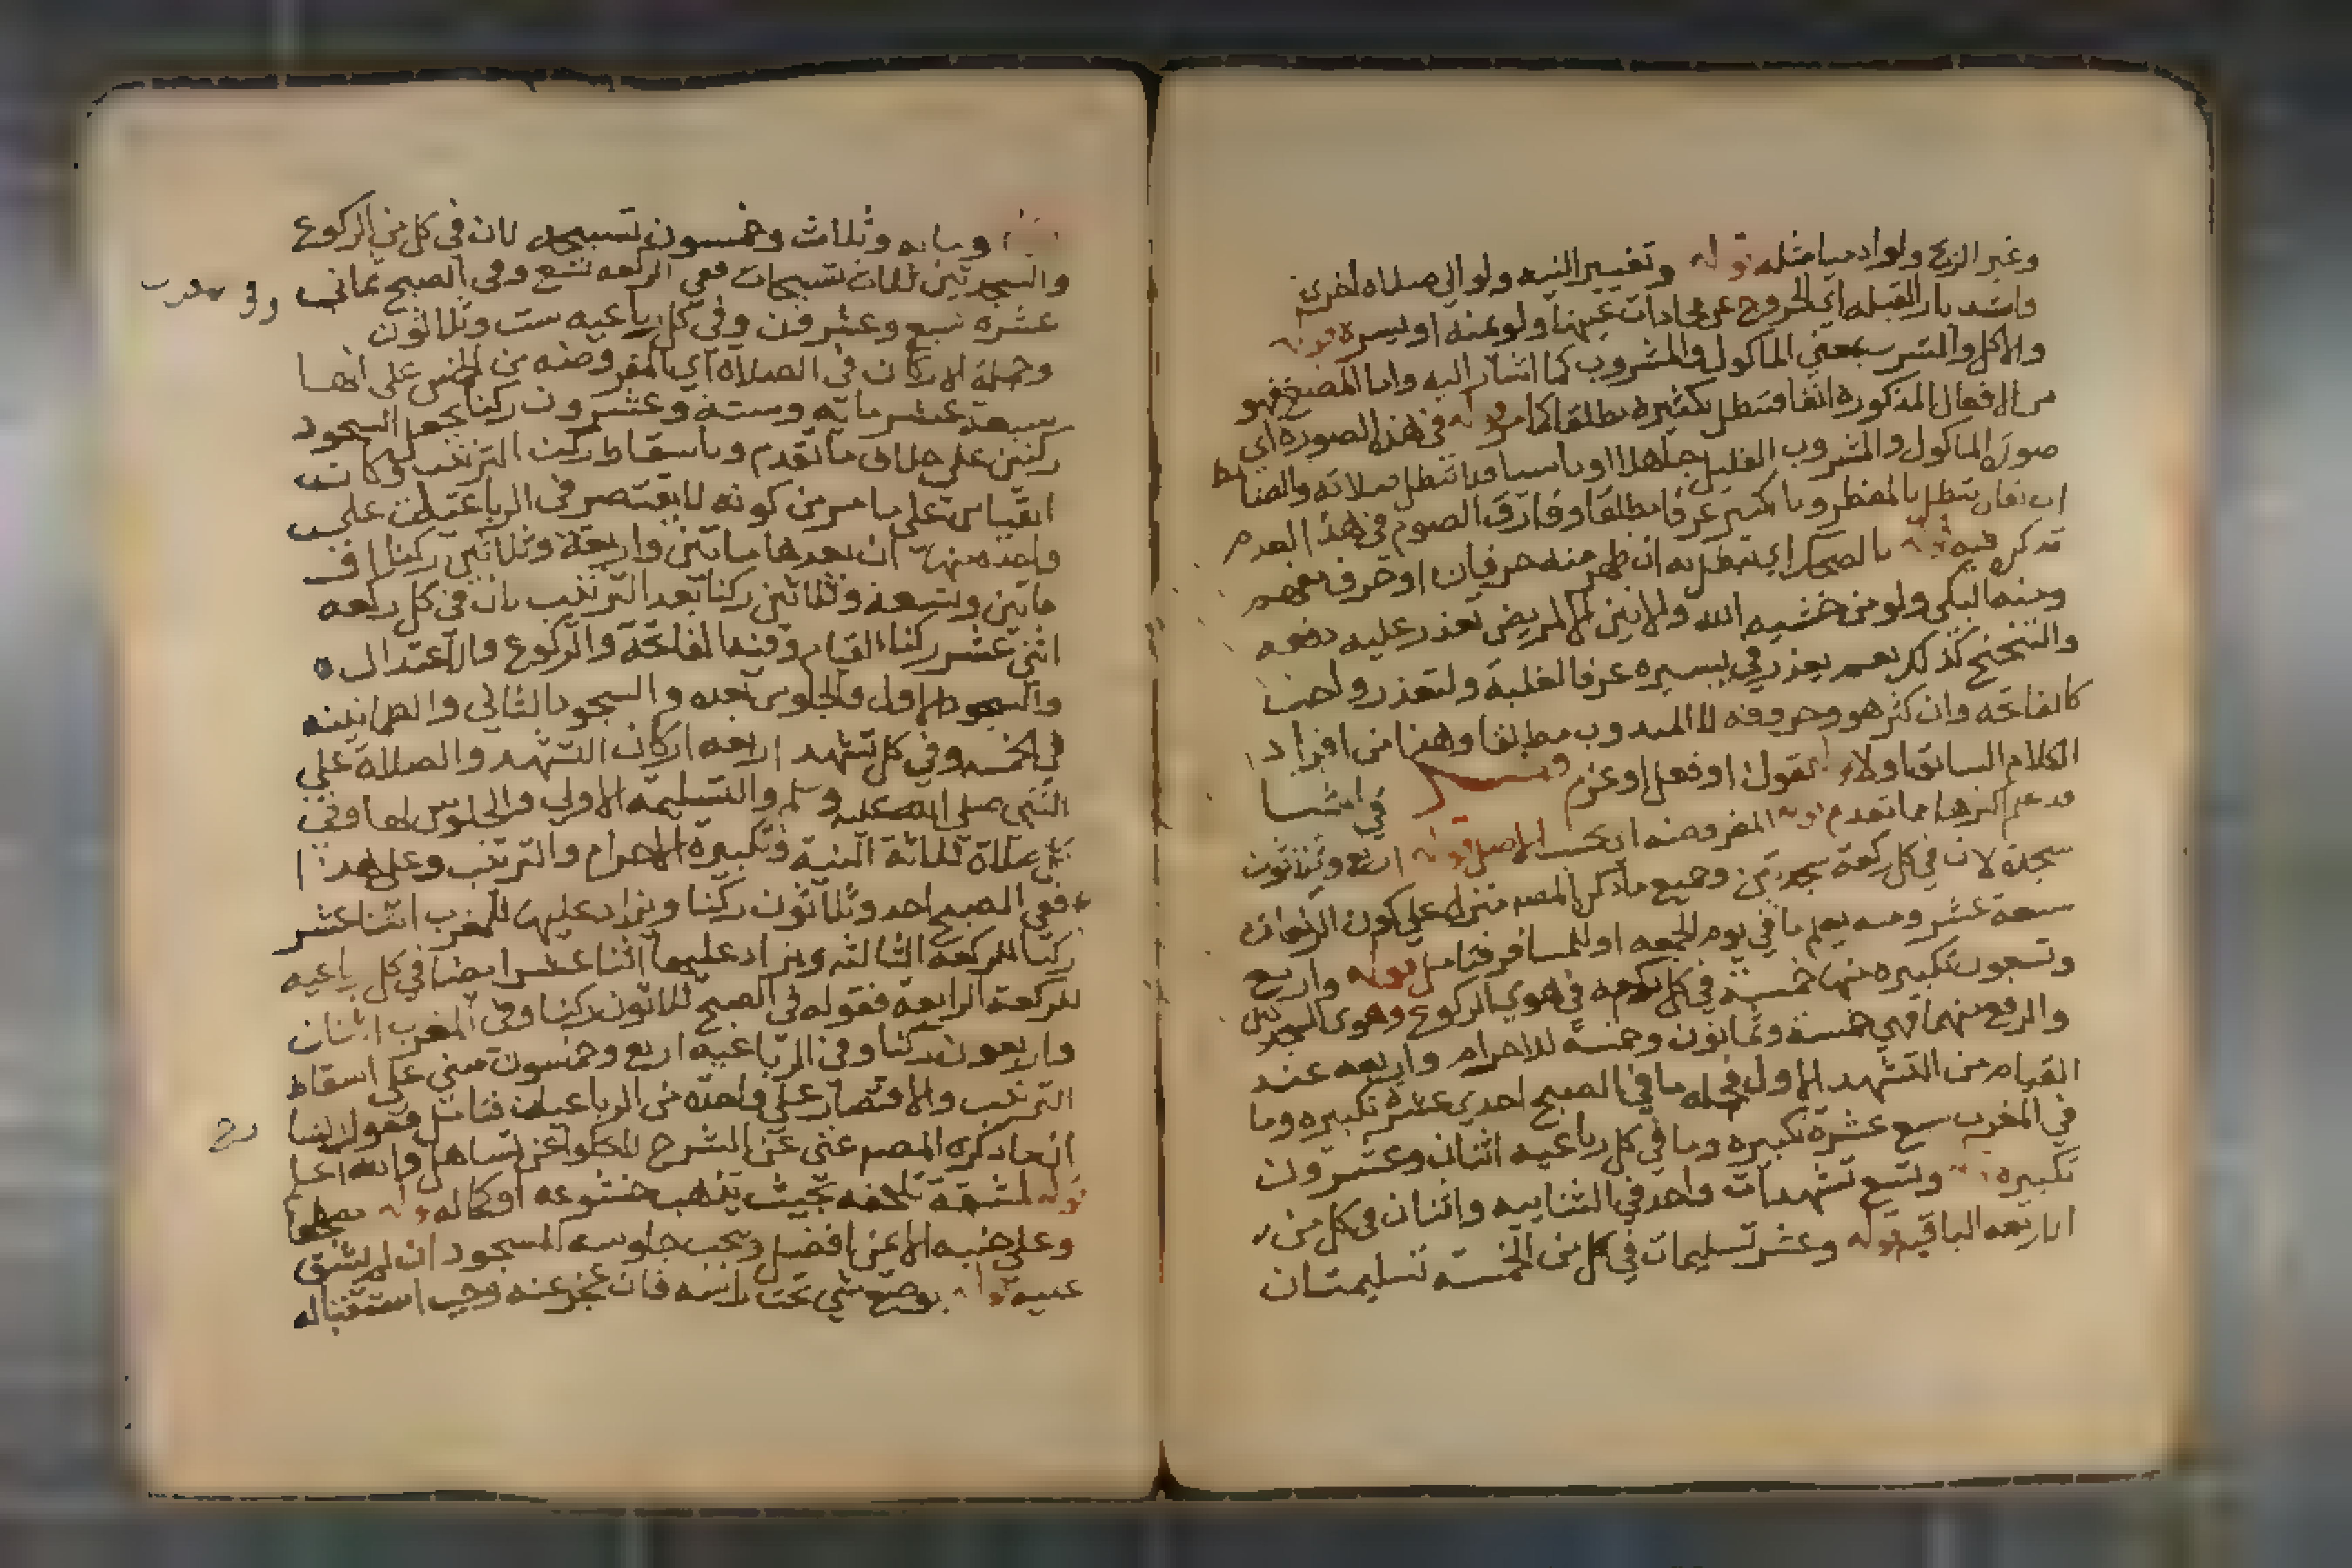 وغير الريح ولو ادميا مثله قوله وتغيير النيه ولو الي صلاه اخري
واستدبار القبله اي الخروج عن محاذات عينها ولو يمنه او يسره قوله
والاكل والشرب بمعني الماكول والمشروب كما اشار اليه واما المضغ فهو
من الافعال المذكوره انفا فتبطل بكثيره مطلقا كما مر قوله في هذه الصوره اي
صورة الماكول والمشروب القليل جاهلا او ناسيا فلا تبطل صلاته والضابط
ان يقال تبطل بالمفطر وبالكثير عرفا مطلقا وفارق الصوم في هذا لعدم
تذكر فيه قوله بالضحك اي تبطل به ان ظهر منه حرفان او حرف مفهم
ومنه البكي ولو من خشيه الله والانين الا لمريض تعذر عليه دفعه
والتنحنح كذلك نعم يعذر في يسيره عرفا لغلبة ولتعذر واجب
كالفاتحه وان كثر هو وحروفه لا المندوب مطلقا وهذا من افراد
الكلام السابق اولا لقول او فعل او عزم في اشيا
قد علم اكثرها مما تقدم قوله المفروضه اي بحسب الاصل قوله اربع وثلاثون
سجدة لان في كل ركعة سجدتين وجميع ما ذكر المصم منزل علي كون الركعات
سبعة عشر ومنه يعلم ما في يوم الجمعه او للمسافر فتامل قوله واربع
وتسعون تكبيره منها خمسة في كل ركعه في هوي الركوع وهوي السجدتين
والرفع منهما فهي خمسة وثمانون وخمسة للاحرام واربعه عند
القيام من التشهد الاول فجمله ما في الصبح احدي عشرة تكبيره وما
في المغرب سبع عشرة تكبيره وما في كل رباعيه اثنان وعشرون
تكبيره قوله وتسع تشهدات واحد في الثناييه واثنان في كل من
الاربعه الباقيه قوله وعشر تسليمات في كل من الخمسه تسليمتان
ومايه وثلاث وخمسون تسبيحه لان في كل من الركوع
والسجدتين ثلاث تسبيحات ففي الركعه تسع وفي الصبح ثماني
عشره سبع وعشرون وفي كل رباعيه ست وثلاثون
وفي مغرب
وجملة الاركان في الصلاة اي المفروضه من الخمس علي انها
سبعة عشر مايه وستة وعشرون ركنا بجعل السجود
ركنين علي خلاف ما تقدم وباسقاط ركن الترتيب وكان
القياس علي ما مر من كونه لا يقتصر في الرباعيات علي
واحده منها ان يعدها مايتين واربعة وثلاثين ركنا او
مايتين وتسعة وثلاثين ركنا بعد الترتيب بان في كل ركعه
اثني عشر ركنا القيام وقيدا لفاتحة والركوع والاعتدال
والسجود الاول والجلوس بعده والسجود الثاني والطمانينه
في الخمسه وفي كل تشهد اربعه اركان التشهد والصلاة علي
النبي صلي الله عليه وسلم والتسليمه الاولي والجلوس لها وفي
كل صلاة ثلاثة النية وتكبيرة الاحرام والترتيب وعلي هذا
ففي الصبح احد وثلاثون ركنا ويزاد عليها للمغرب اثنا عشر
ركنا للركعة الثالثه ويزاد عليهما اثنا عشر ايضا في كل رباعيه
للركعة الرابعة فقوله في الصبح ثلاثون ركنا وفي المغرب اثنان
واربعون ركنا وفي الرباعيه اربع وخمسون مبني علي اسقاط
الترتيب والاقتصار علي واحدة من الرباعيات فتامل
ذكره المصم غني عن الشرح للخلو عن تساهل والله اعلم
قوله لمشقة تلحقه بحيث يذهب خشوعه او كماله قوله
وعلي جنبه الايمن افضل ويجب جلوسه للسجود ان لم يشق
عليه قوله بوضع شي تحت راسه فان عجز عنه وجب استقباله